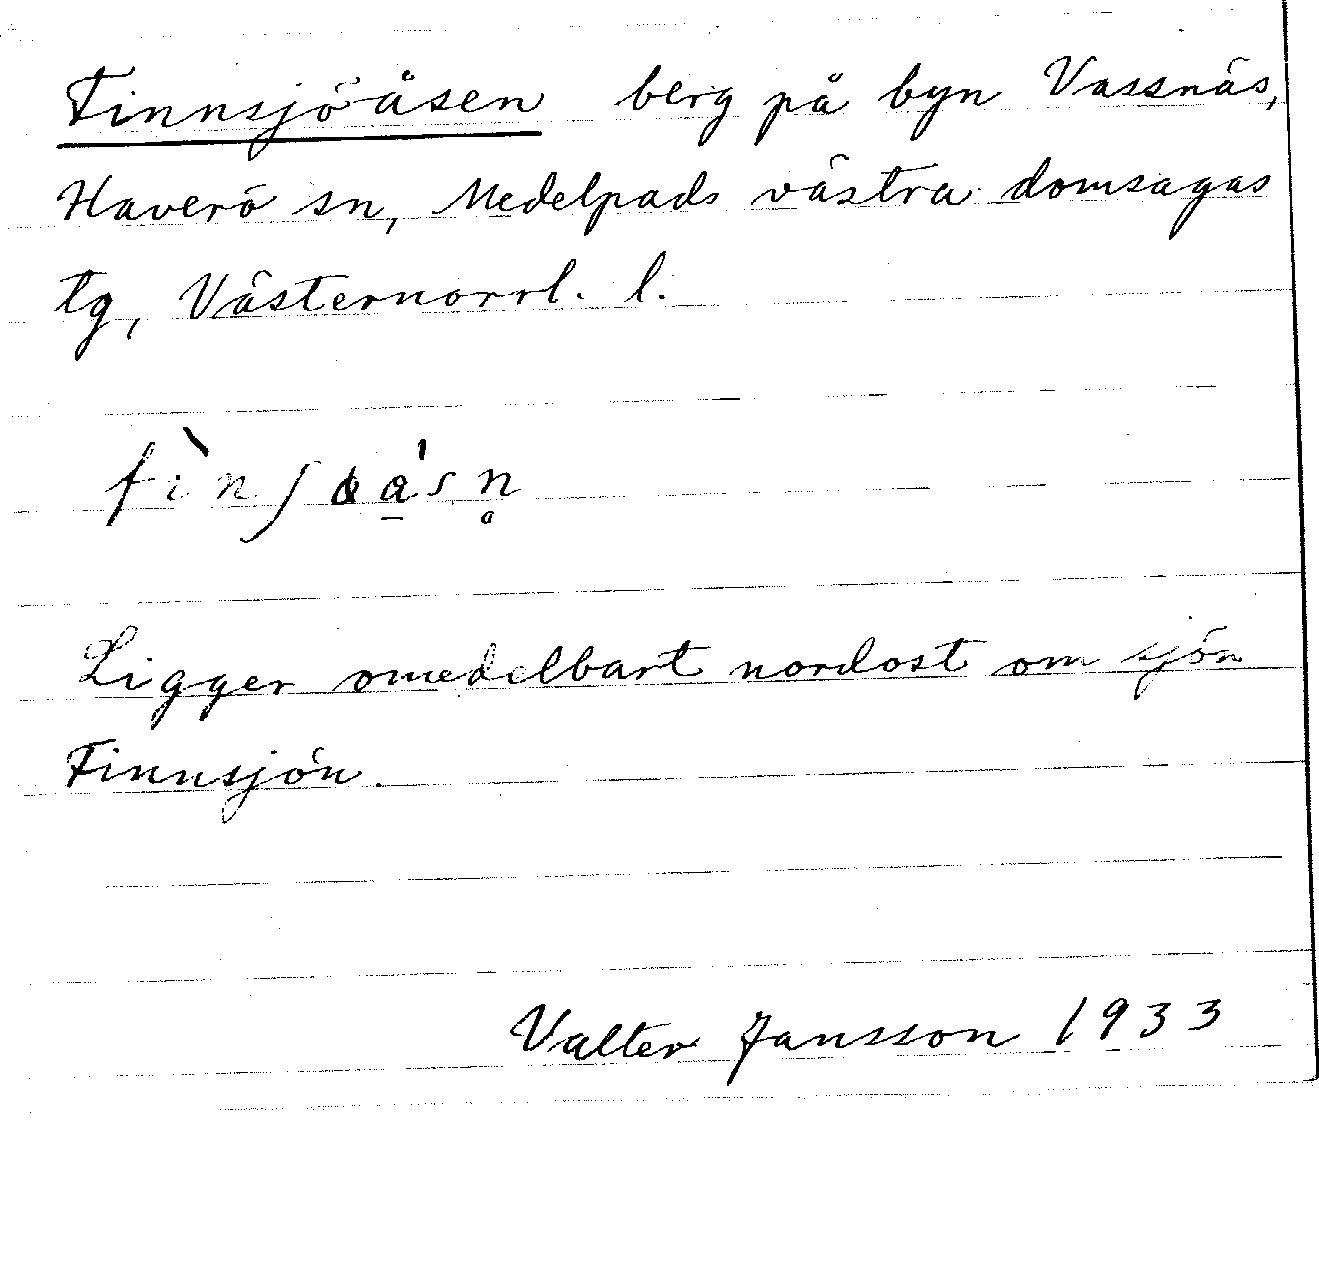 Finnsjöåsen berg på byn Vassnäs,
Haverö sn, Medelpads västra domsagas
tg, Västernorrl. l.
Ligger omedelbart nordost om sjön
Finnsjön.
Valter Jansson 1933